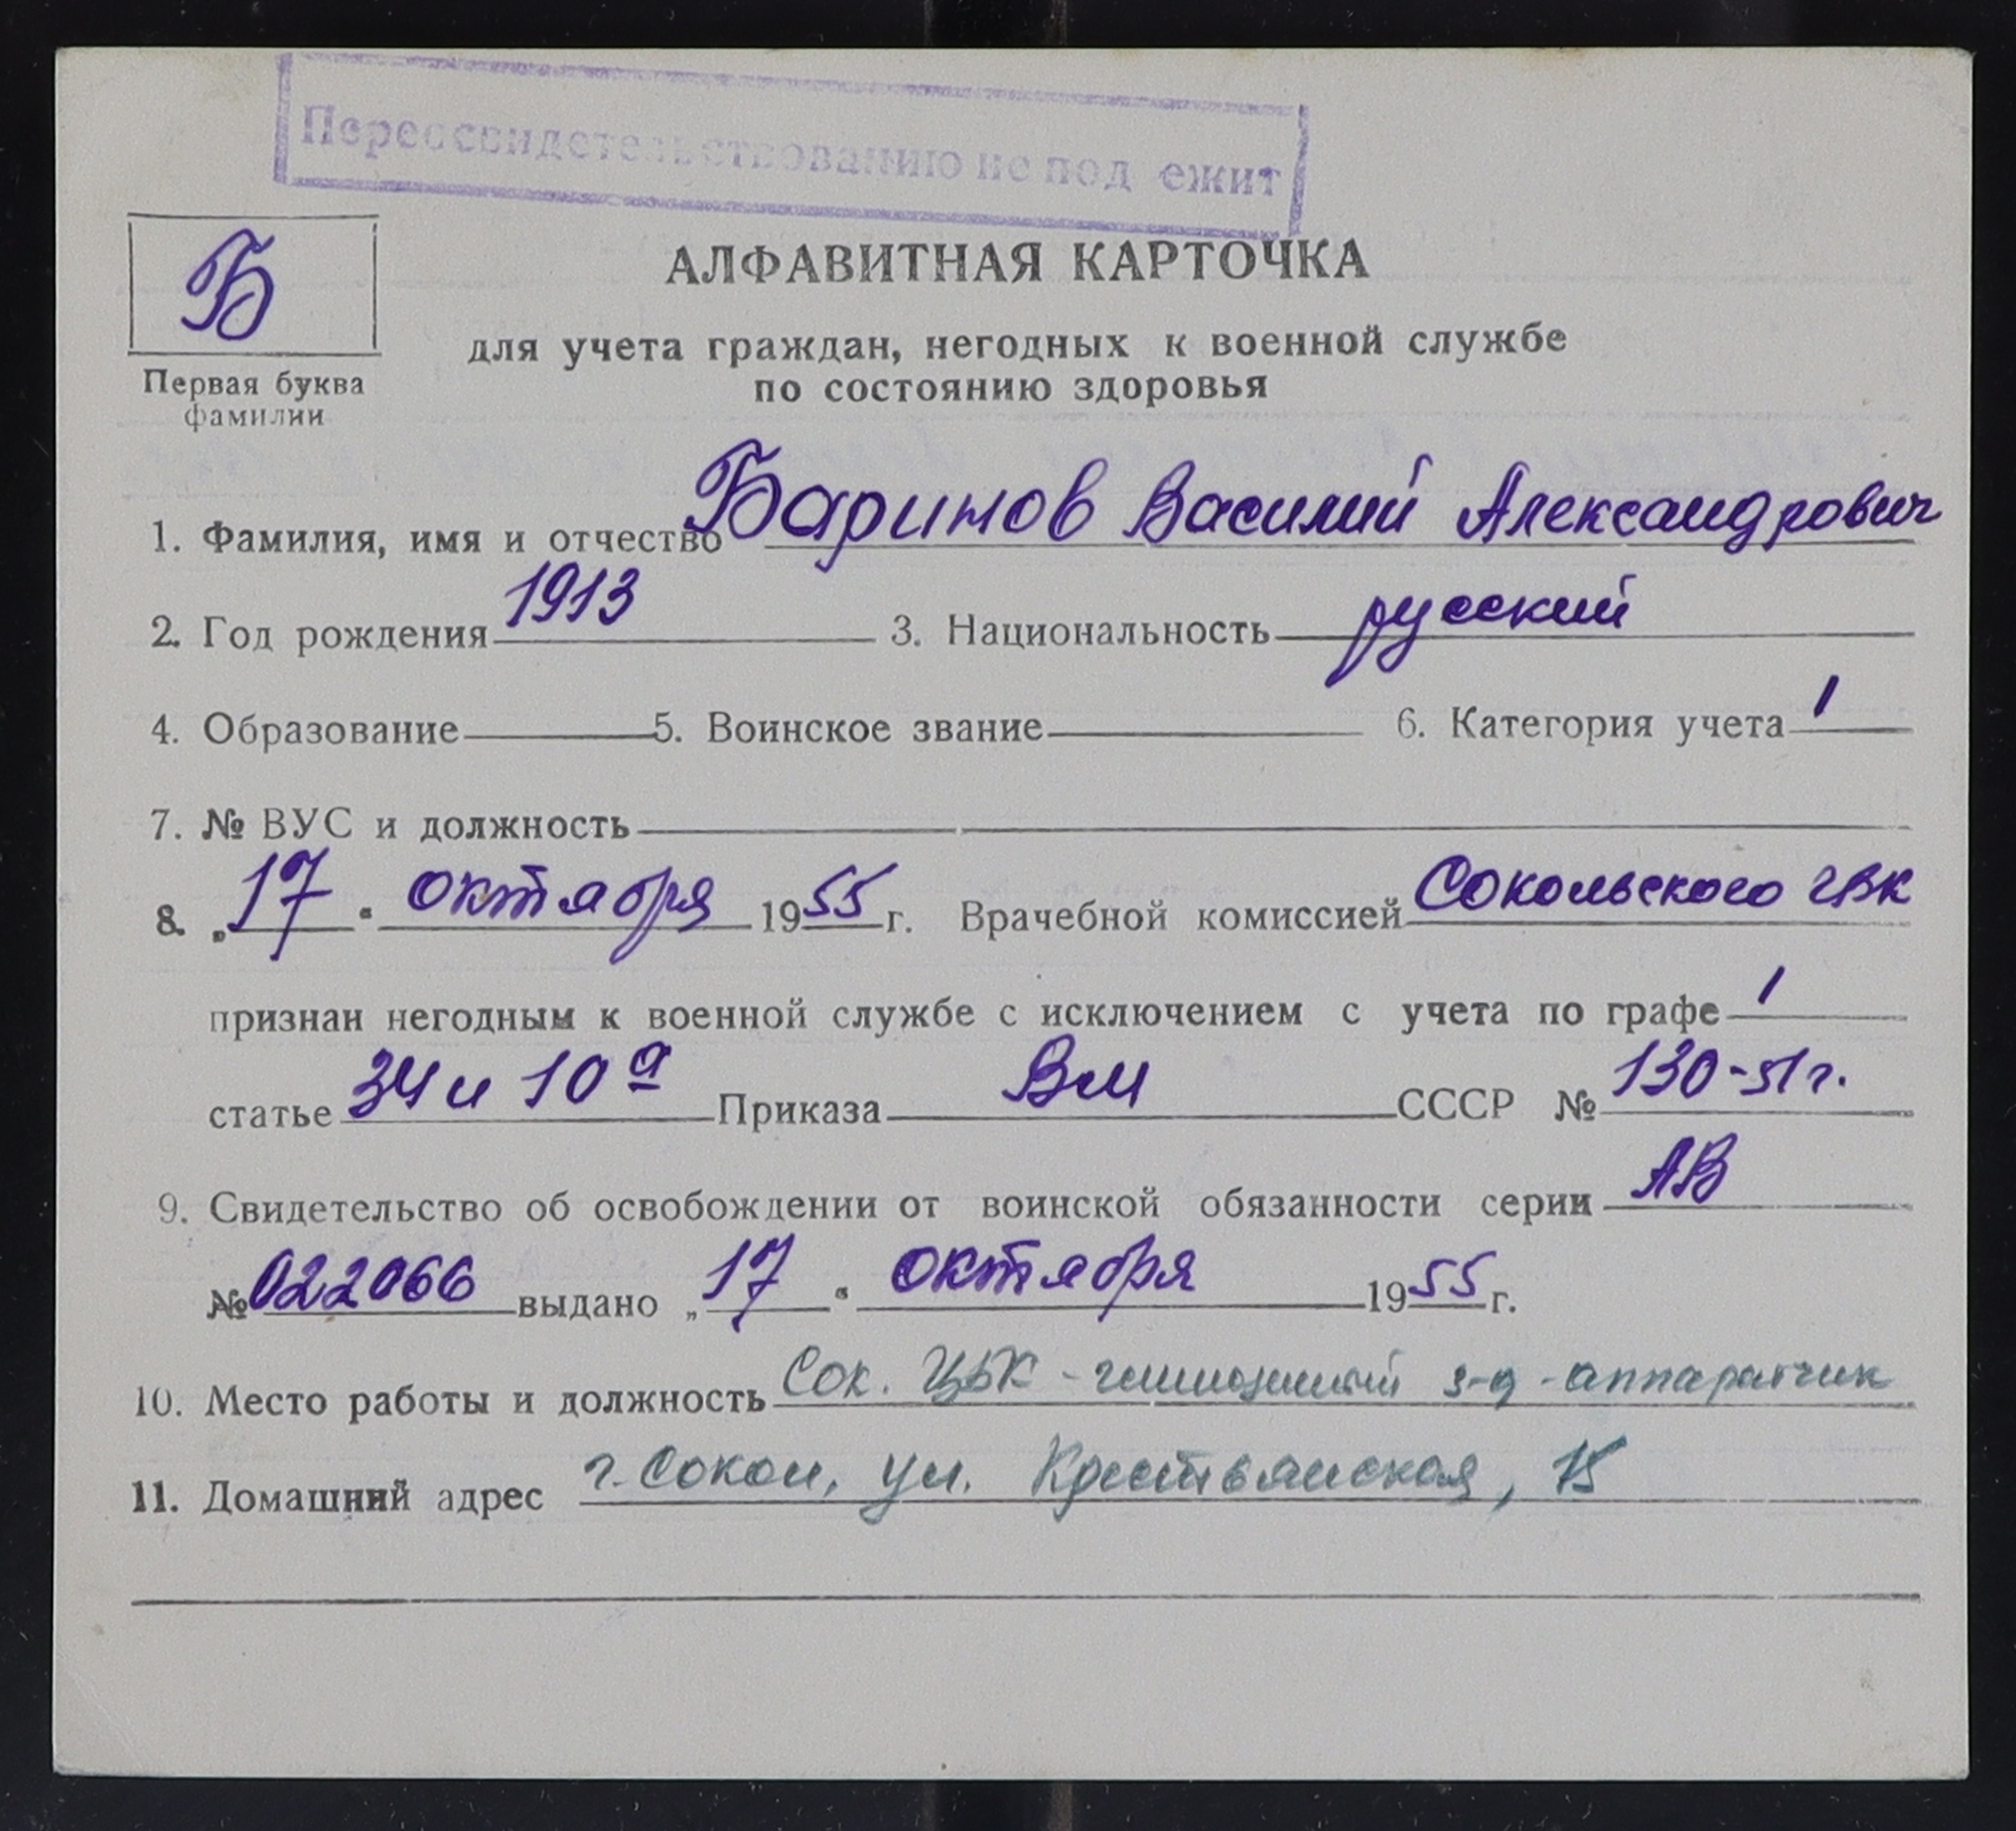 Переосвидетельствованию не подлежит
Б
Первая буква
фамилии
АЛФАВИТНАЯ КАРТОЧКА
для учета граждан, негодных к военной службе
по состоянию здоровья
1. Фамилия, имя и отчество Баринов Василий Александрович
2. Год рождения 1913 3. Национальность русский
4. Образование 5. Воинское звание 6. Категория учета 1
7. № ВУС и должность
8. „17“ октября 1955 г. Врачебной комиссией Сокольского ГВК
признан негодным к военной службе с исключением с учета по графе 1
статье 34 и 10 а Приказа ВМ СССР № 130-51г.
9. Свидетельство об освобождении от воинской обязанности серии АВ
№ 022066 выдано „17“ октября 1955 г.
10. Место работы и должность Сок. ЦБК - з-д - аппаратчик
11. Домашний адрес г. Сокол, ул. Крестьянская, 15